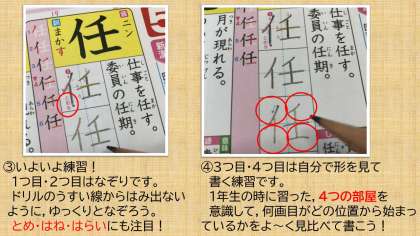 任
ニン
まかす
任
任
仕事を任す。
委員の任期。
月が現れる。
任
任
仕事を任す。
委員の任期。
③いよいよ練習！
1つ目・2つ目はなぞりです。
ドリルのうすい線からはみ出ない
ように, ゆっくりとなぞろう。
とめ・はね・はらいにも注目！
④3つ目・4つ目は自分で形を見て
書く練習です。
1年生の時に習った, 4つの部屋を
意識して, 何画目がどの位置から始まっ
ているかをよ～く見比べて書こう！